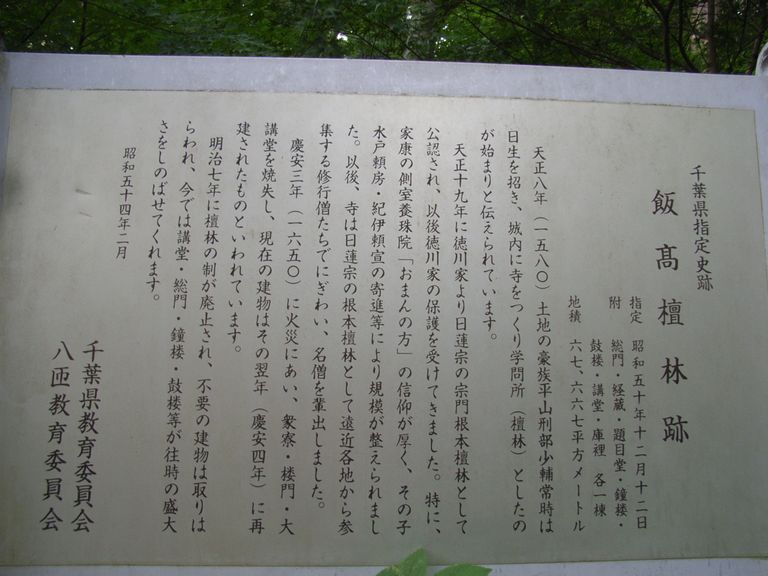 千葉県指定史跡
飯髙檀林跡
指定　昭和五十年十二月十二日
附　総門・経蔵・題目堂・鐘楼・
鼓楼・講堂・庫裡　各一棟
地積　六七、六六七平方メートル
天正八年（一五八〇）土地の豪族平山刑部少輔常時は
日生を招き、城内に寺をつくり学問所（檀林）としたの
が始まりと伝えられています。
天正十九年に徳川家より日蓮宗の宗門根本檀林として
公認され、以後徳川家の保護を受けてきました。特に、
家康の側室養珠院「おまんの方」の信仰が厚く、その子
水戸頼房・紀伊頼宣の寄進等により規模が整えられまし
た。以後、寺は日蓮宗の根本檀林として遠近各地から参
集する修行僧たちでにぎわい、名僧を輩出しました。
慶安三年（一六五〇）に火災にあい、衆寮・楼門・大
講堂を焼失し、現在の建物はその翌年（慶安四年）に再
建されたものといわれています。
明治七年に檀林の制が廃止され、不要の建物は取りは
らわれ、今では講堂・総門・鐘楼・鼓楼等が往時の盛大
さをしのばせてくれます。
昭和五十四年二月
千葉県教育委員会
八匝教育委員会